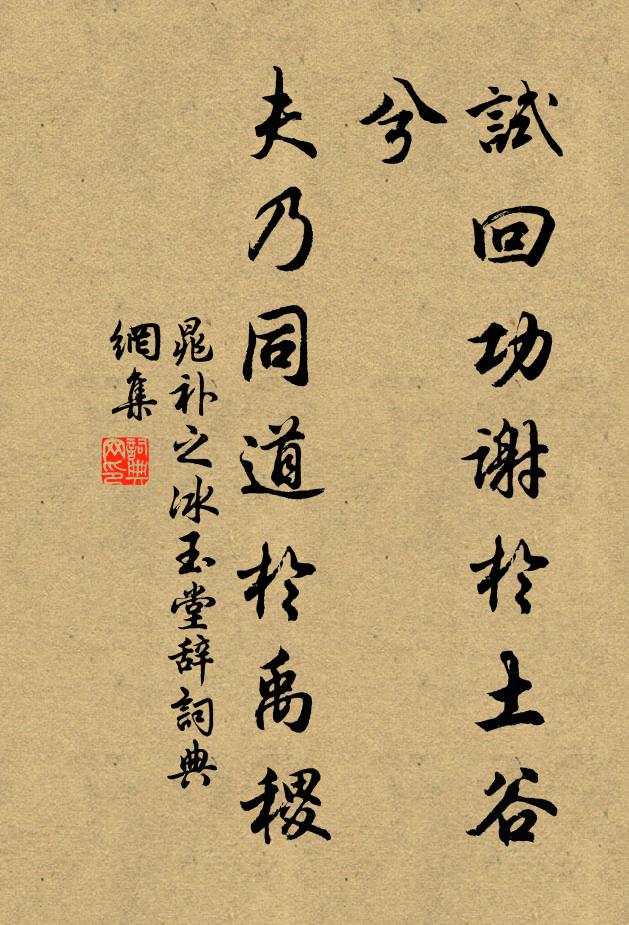 試回功謝於土谷
兮
夫乃同道於禹稷
晁补之冰玉堂辞詞典
網集
詞典网印